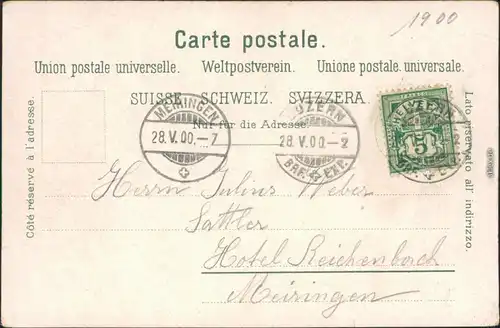 1900
Carte postale.
Union postale universelle. Weltpostverein. Unione postale universale.
SUISSE. SCHWEIZ. SVIZZERA.
Nur für die Adresse.
Côté réservé à l'adresse.
Lato riservato all' indirizzo.
MEIRINGEN
28.V.00.-7
LUZERN
28.V.00.-2
BRF. EXP.
5
Herrn Julius Weber
Sattler
Hotel Reichenbach
Meiringen